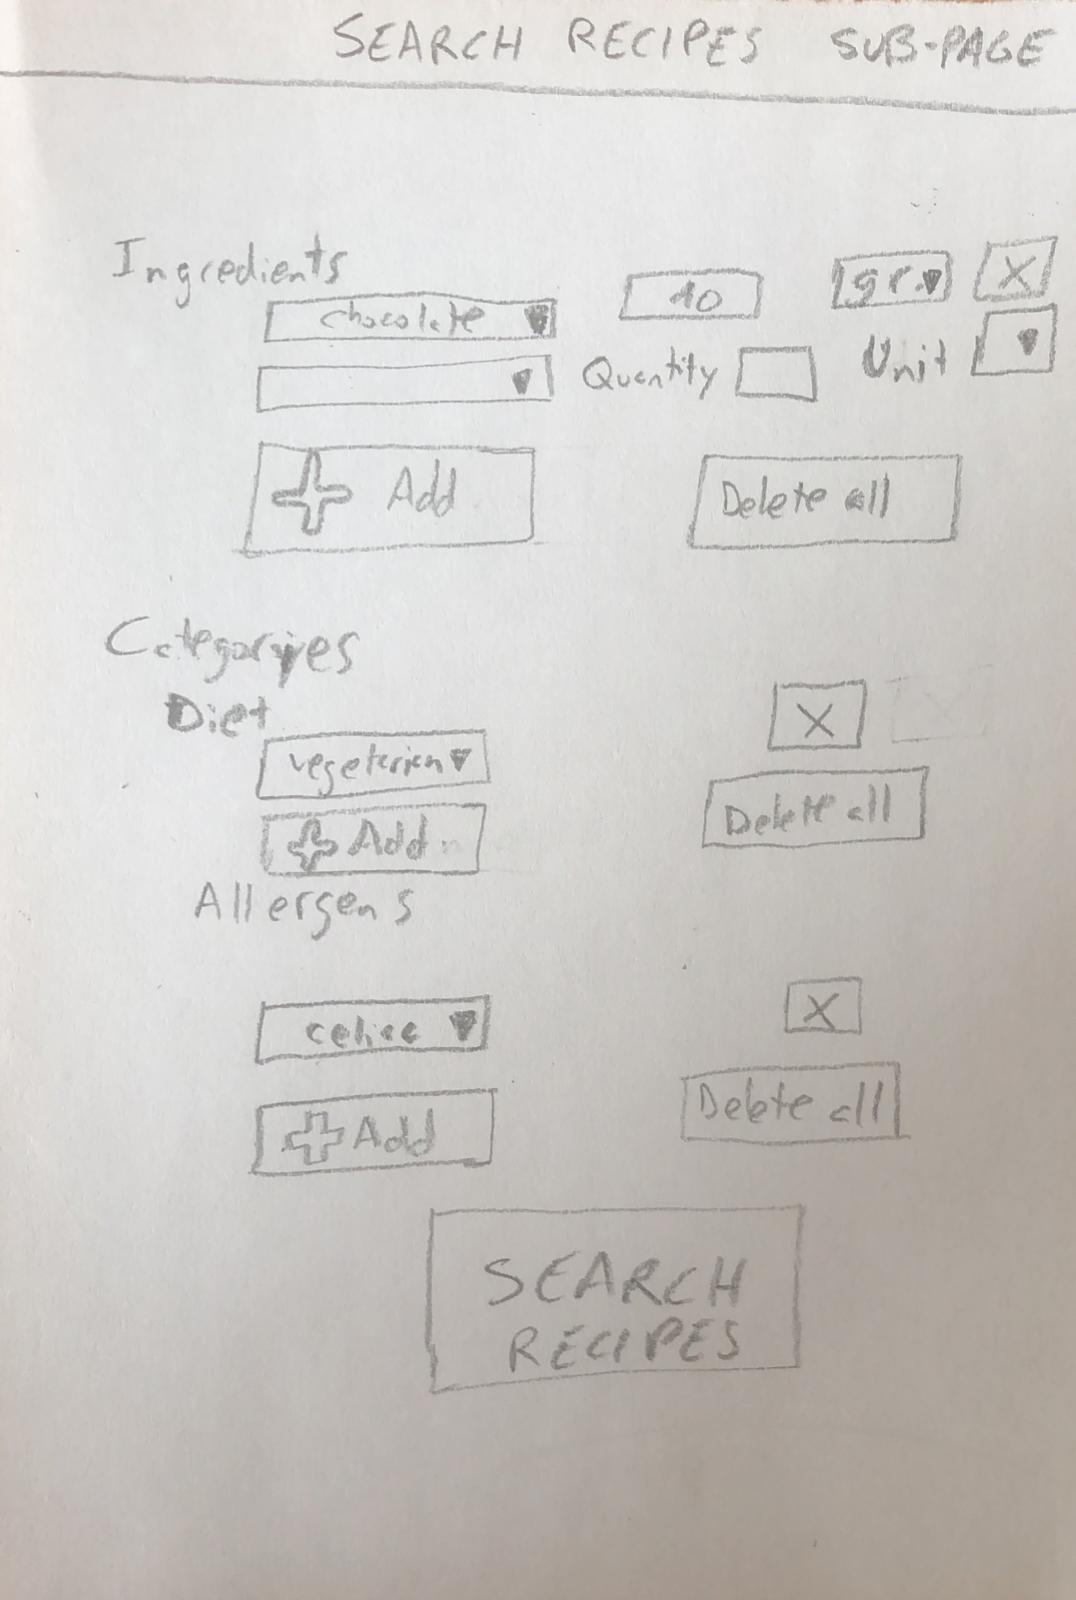 SEARCH RECIPES SUB-PAGE
Ingredients
chocolate 10 gr. X
Quantity Unit
Add Delete all
Categories
Diet
vegetarian X
Add Delete all
Allergens
celiac X
Add Delete all
SEARCH
RECIPES